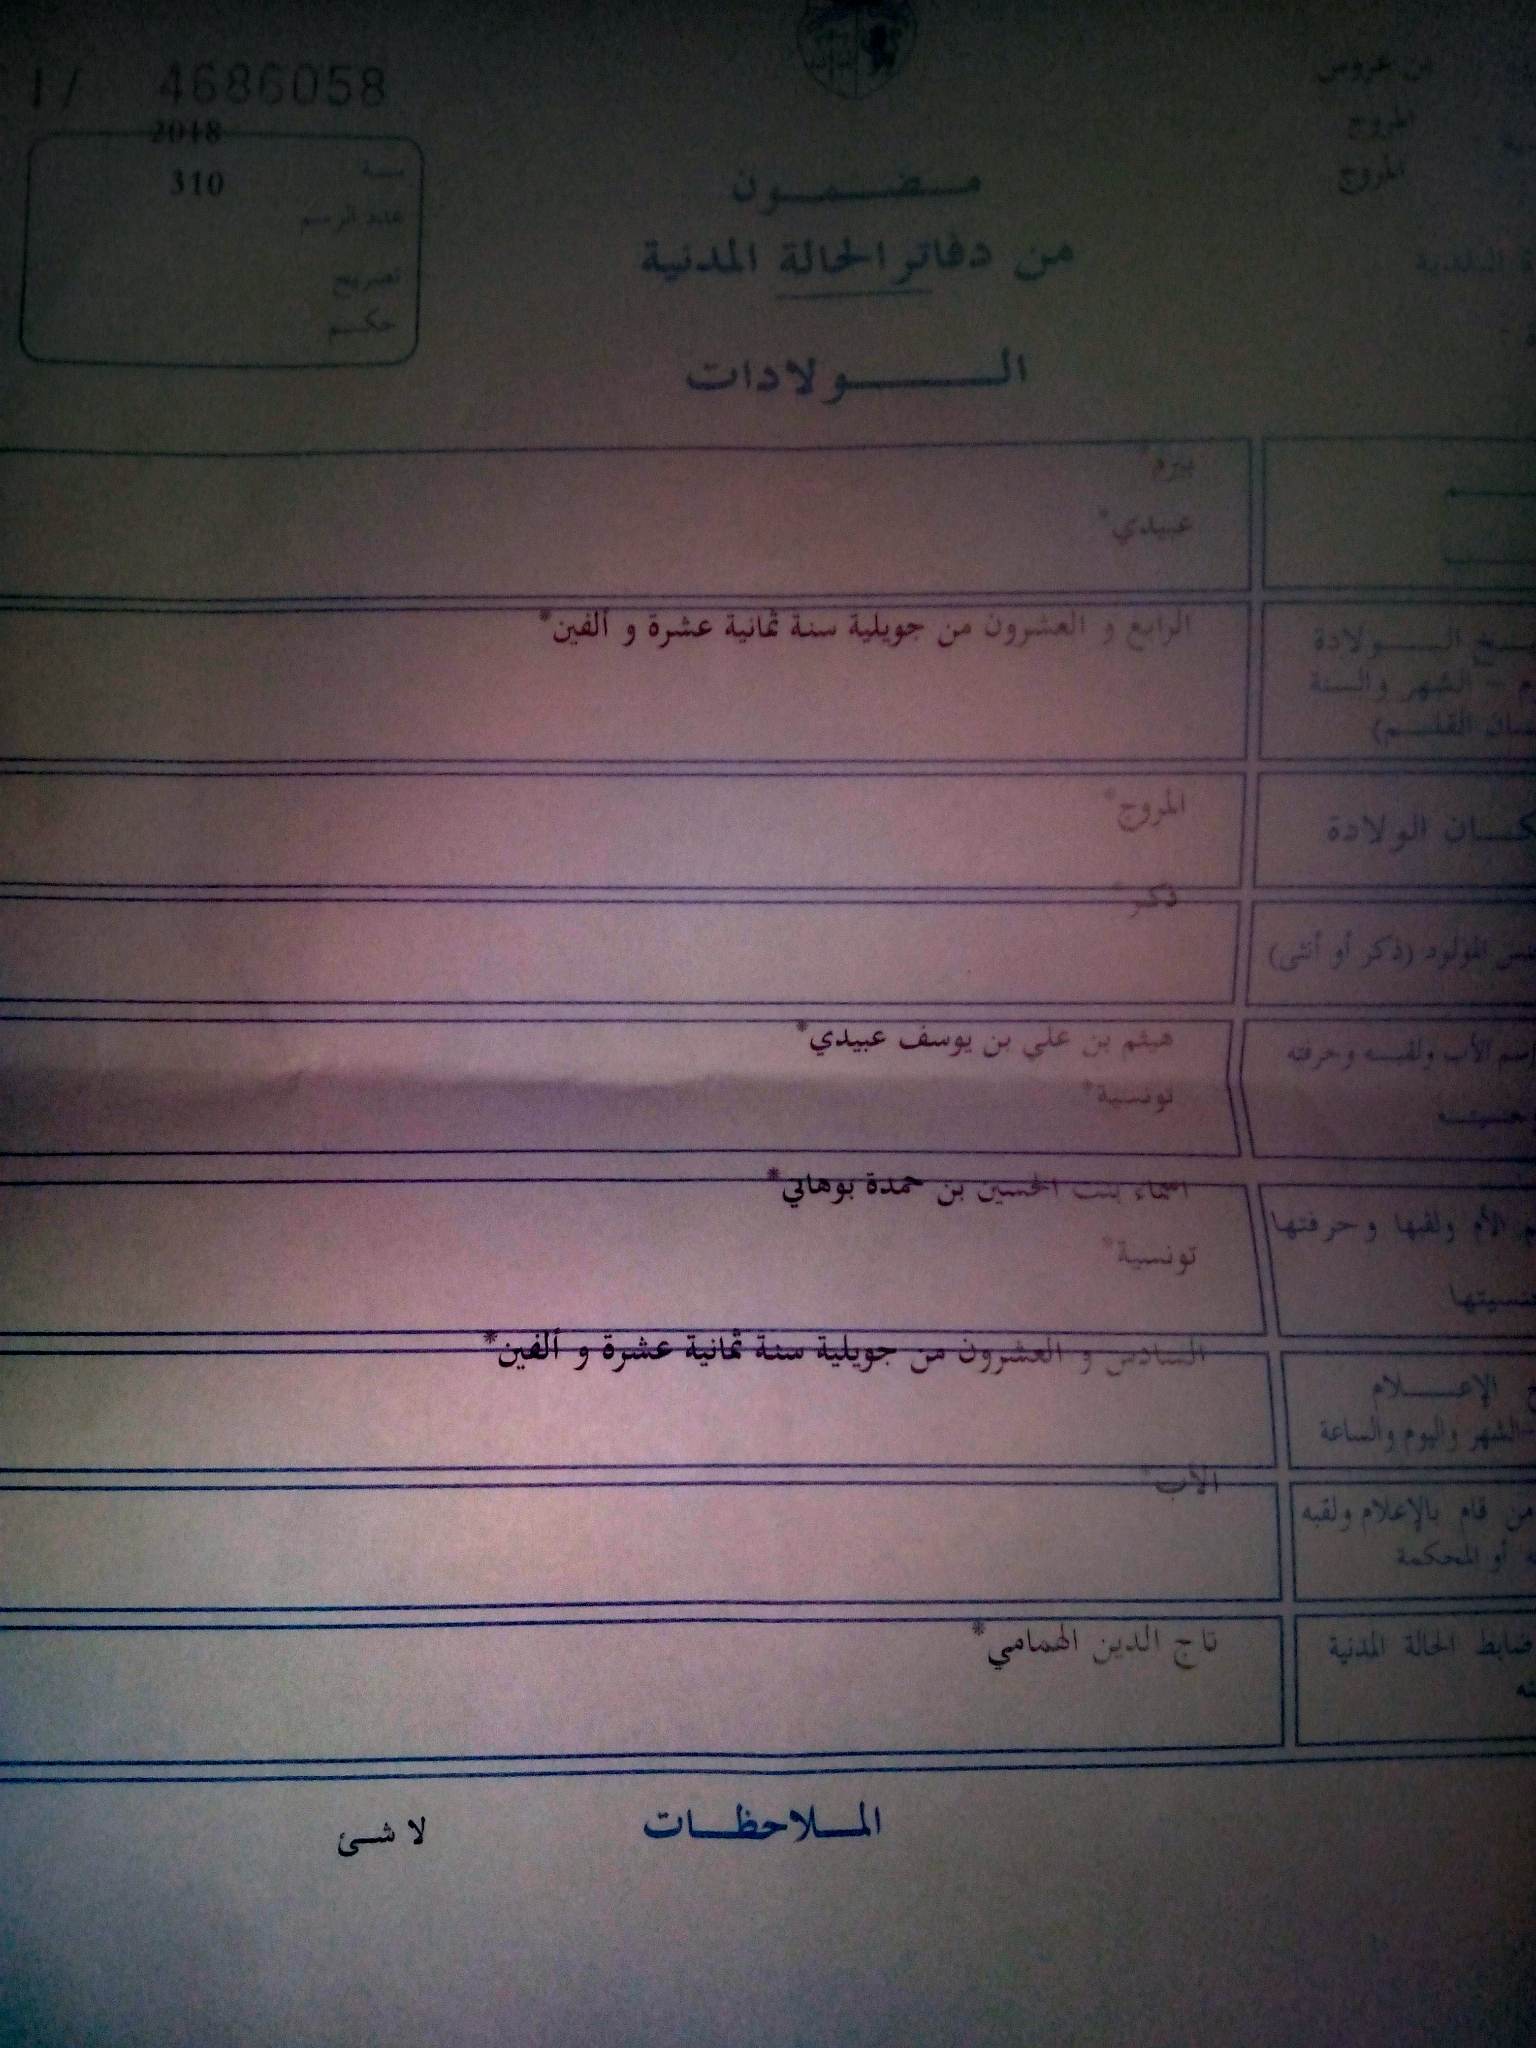 I / 4686058
2018
310
سنة
عدد الرسم
تصريح
حكم
بن عروس
المروج
المروج
البلدية
مضمون
من دفاتر الحالة المدنية
الولادات
بيرم*
عبيدي*
الولادة
الشهر والسنة
القلم)
الرابع و العشرون من جويلية سنة ثمانية عشرة و ألفين*
الولادة
المروج*
المولود (ذكر أو أنثى)
ذكر*
الأب ولقبه وحرفته
هيثم بن علي بن يوسف عبيدي*
تونسية*
الأم ولقبها وحرفتها
اسماء بنت الحسين بن حمدة بوهاني*
تونسية*
الإعلام
الشهر واليوم والساعة
السادس و العشرون من جويلية سنة ثمانية عشرة و ألفين*
من قام بالإعلام ولقبه
أو المحكمة
الأب*
ضابط الحالة المدنية
تاج الدين الهمامي*
الملاحظات
لا شئ